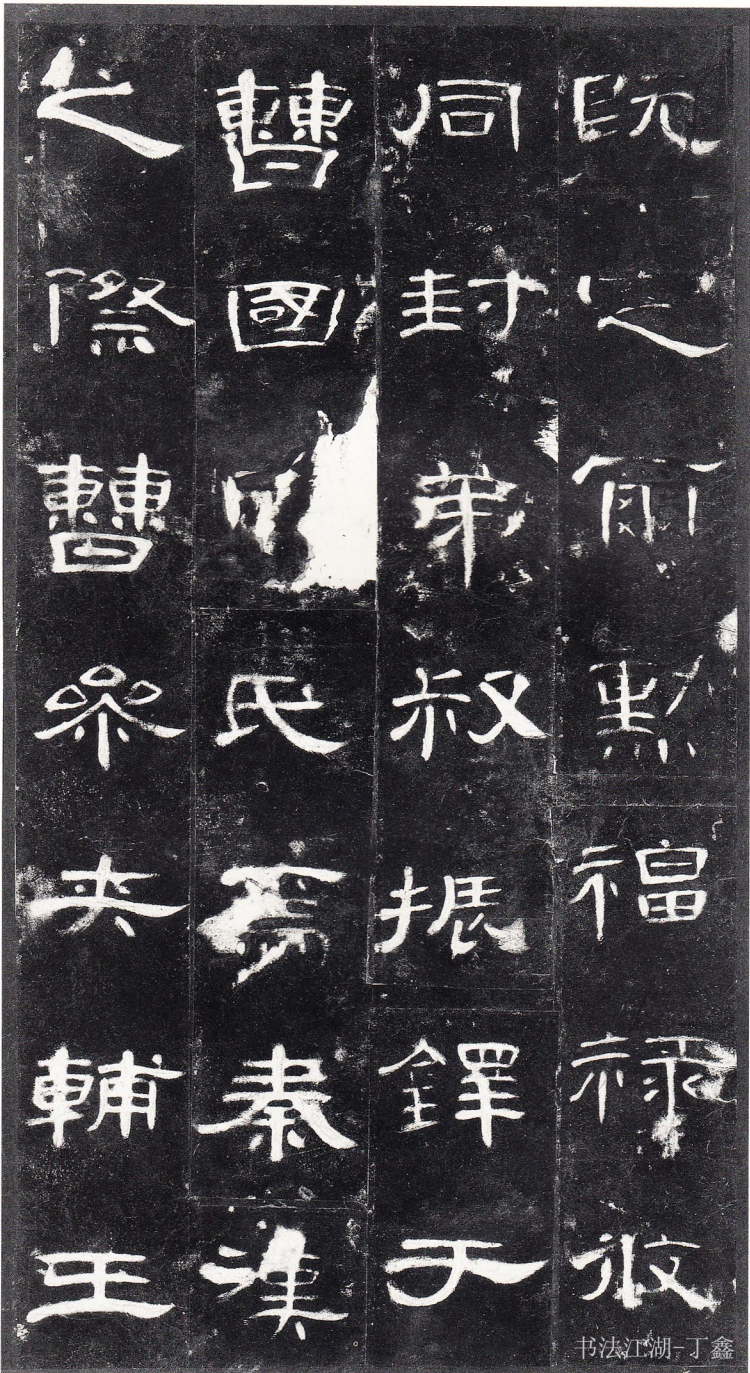 既定爾勳福祿攸
同封弟叔振鐸于
曹國因氏焉秦漢
之際曹參夾輔王
书法江湖-丁鑫